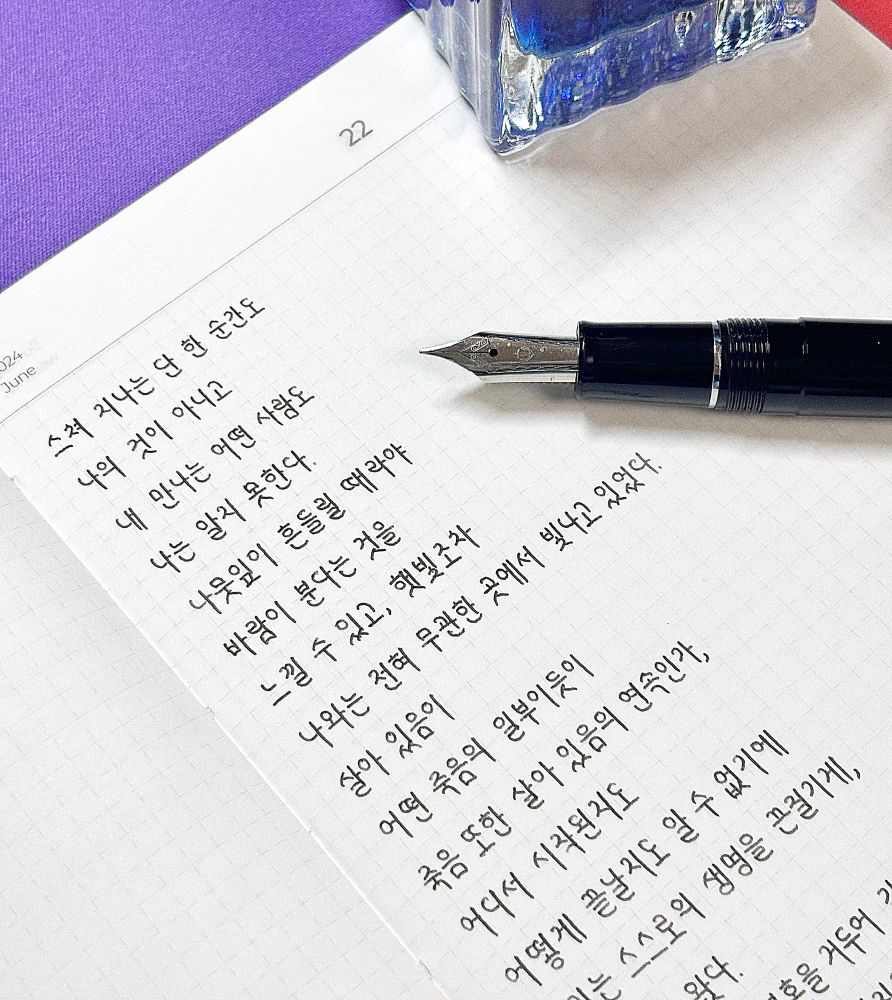 22
June
스쳐 지나는 단 한 순간도
나의 것이 아니고
내 만나는 어떤 사람도
나는 알지 못한다.
나뭇잎이 흔들릴 때라야
바람이 분다는 것을
느낄 수 있고, 햇빛조차
나와는 전혀 무관한 곳에서 빛나고 있었다.
살아 있음이
어떤 죽음의 일부이듯이
죽음 또한 살아 있음의 연속인가,
어디서 시작된지도
어떻게 끝날지도 알 수 없기에
스스로의 생명을 끈질기게,
왔다.
거두어